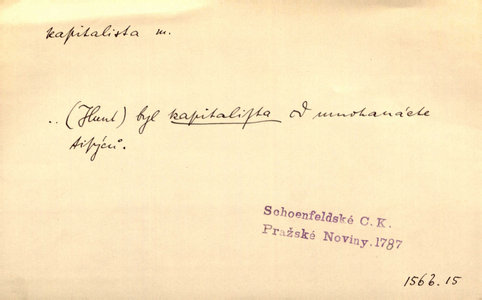 kapitalista m.
.. (Hunt) byl kapitaliſta O mnohanácte
tiſýců.
Schoenfeldské C.K.
Pražské Noviny.1787
156b.15